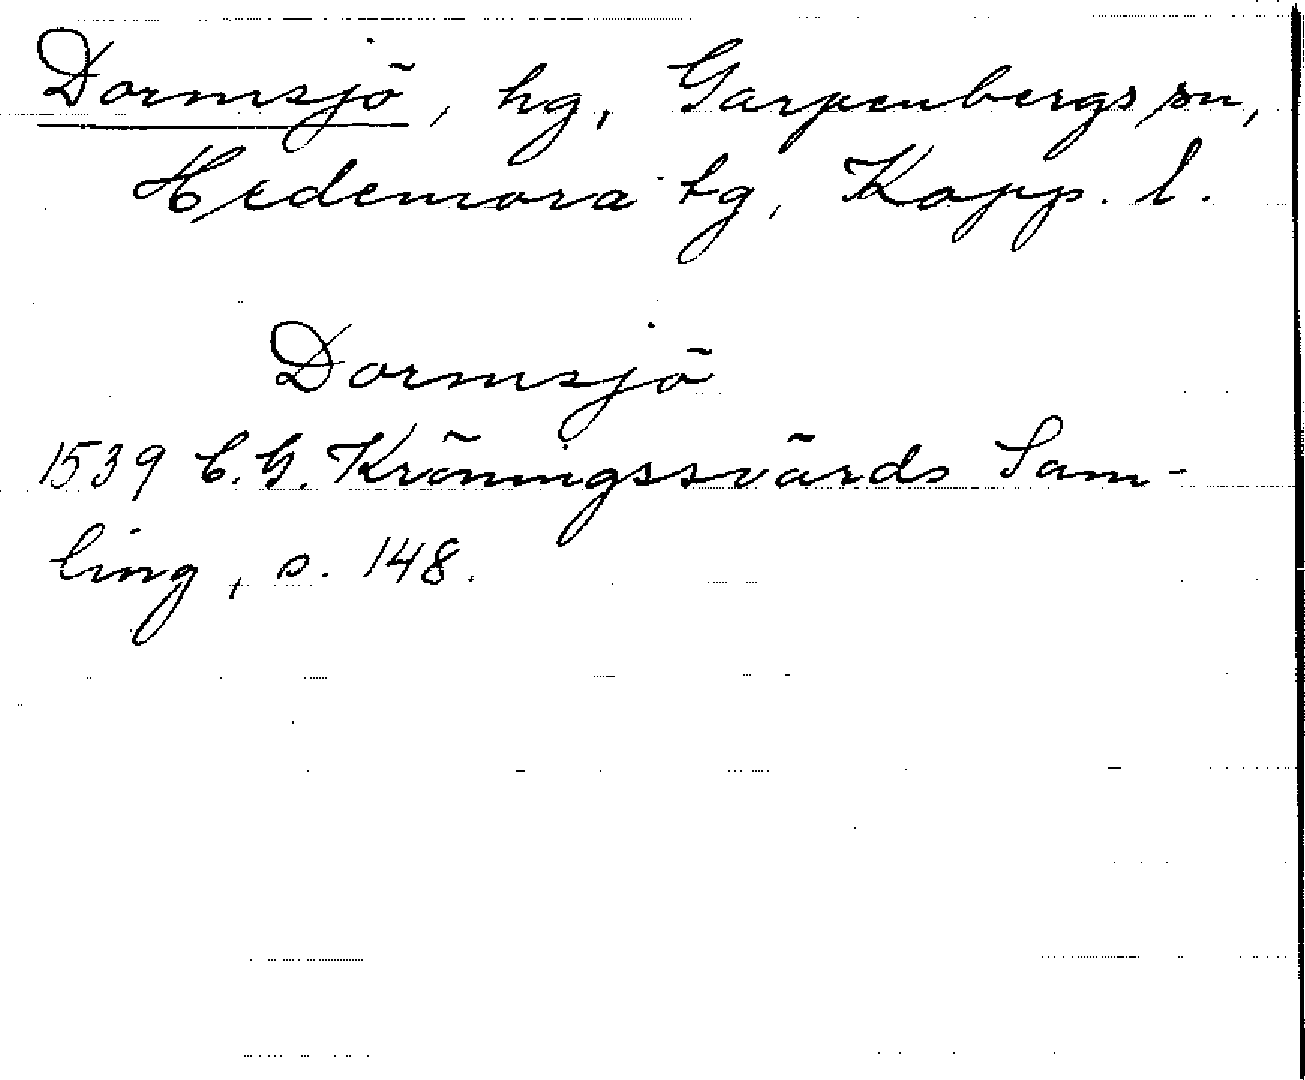 Dormsjö, hg, Garpenbergs sn,
Hedemora tg, Kopp. l.
Dormsjö
1539 C. G. Kröningssvärds Sam-
ling, s. 148.